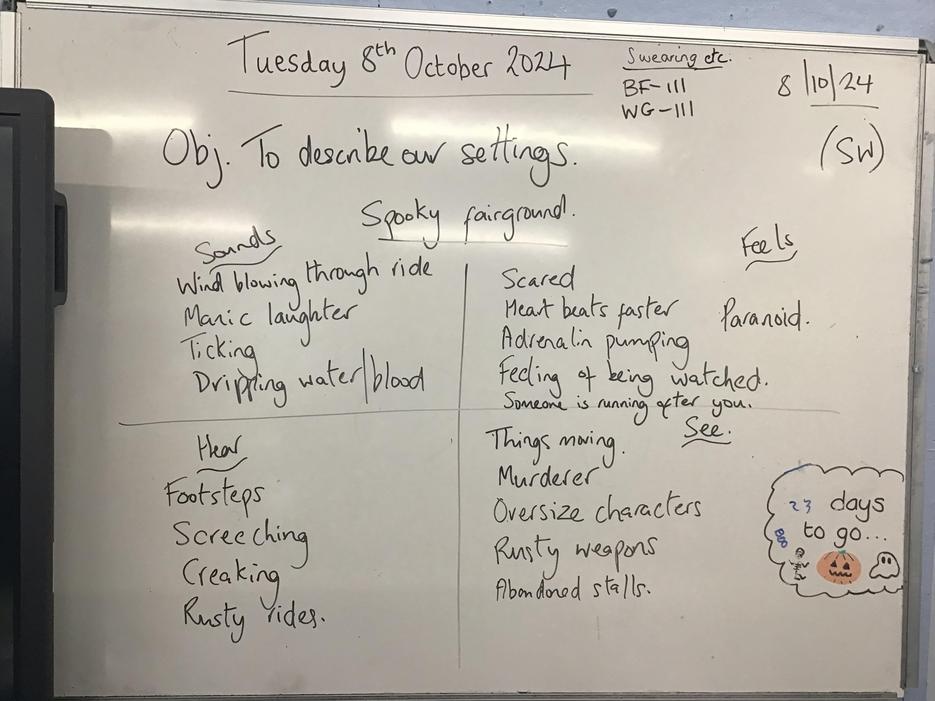 Tuesday 8th October 2024
Swearing etc.
BF-III
WG-III
8/10/24
(SW)
Obj. To describe our settings.
Spooky fairground.
Sounds
Wind blowing through ride
Manic laughter
Ticking
Dripping water/blood
Feels
Scared
Heart beats faster
Paranoid.
Adrenalin pumping
Feeling of being watched.
Someone is running after you.
Hear
Footsteps
Screeching
Creaking
Rusty rides.
See.
Things moving.
Murderer
Oversize characters
Rusty weapons
Abandoned stalls.
23 days
to go...
Boo